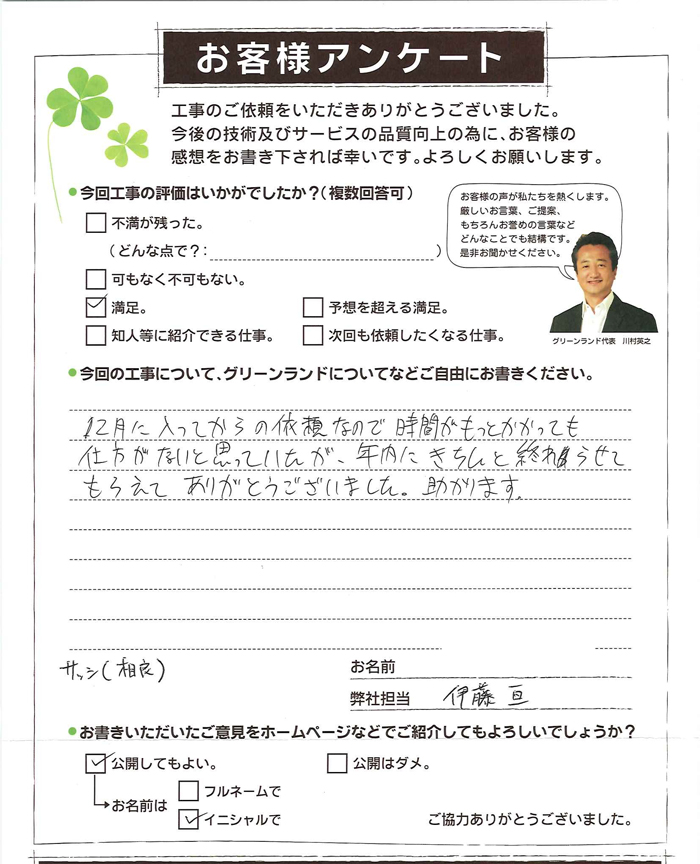 お客様アンケート
工事のご依頼をいただきありがとうございました。
今後の技術及びサービスの品質向上の為に、お客様の
感想をお書き下されば幸いです。よろしくお願いします。
今回工事の評価はいかがでしたか?(複数回答可)
不満が残った。
(どんな点で?: )
可もなく不可もない。
満足。
予想を超える満足。
知人等に紹介できる仕事。
次回も依頼したくなる仕事。
お客様の声が私たちを熱くします。
厳しいお言葉、ご提案、
もちろんお誉めの言葉など
どんなことでも結構です。
是非お聞かせください。
グリーンランド代表 川村英之
今回の工事について、グリーンランドについてなどご自由にお書きください。
12月に入ってからの依頼なので時間がもっとかかっても
仕方がないと思っていたが、年内にきちんと終わらせて
もらえてありがとうございました。助かります。
サッシ(相良)
お名前
弊社担当 伊藤 亘
お書きいただいたご意見をホームページなどでご紹介してもよろしいでしょうか?
公開してもよい。
公開はダメ。
お名前は
フルネームで
イニシャルで
ご協力ありがとうございました。